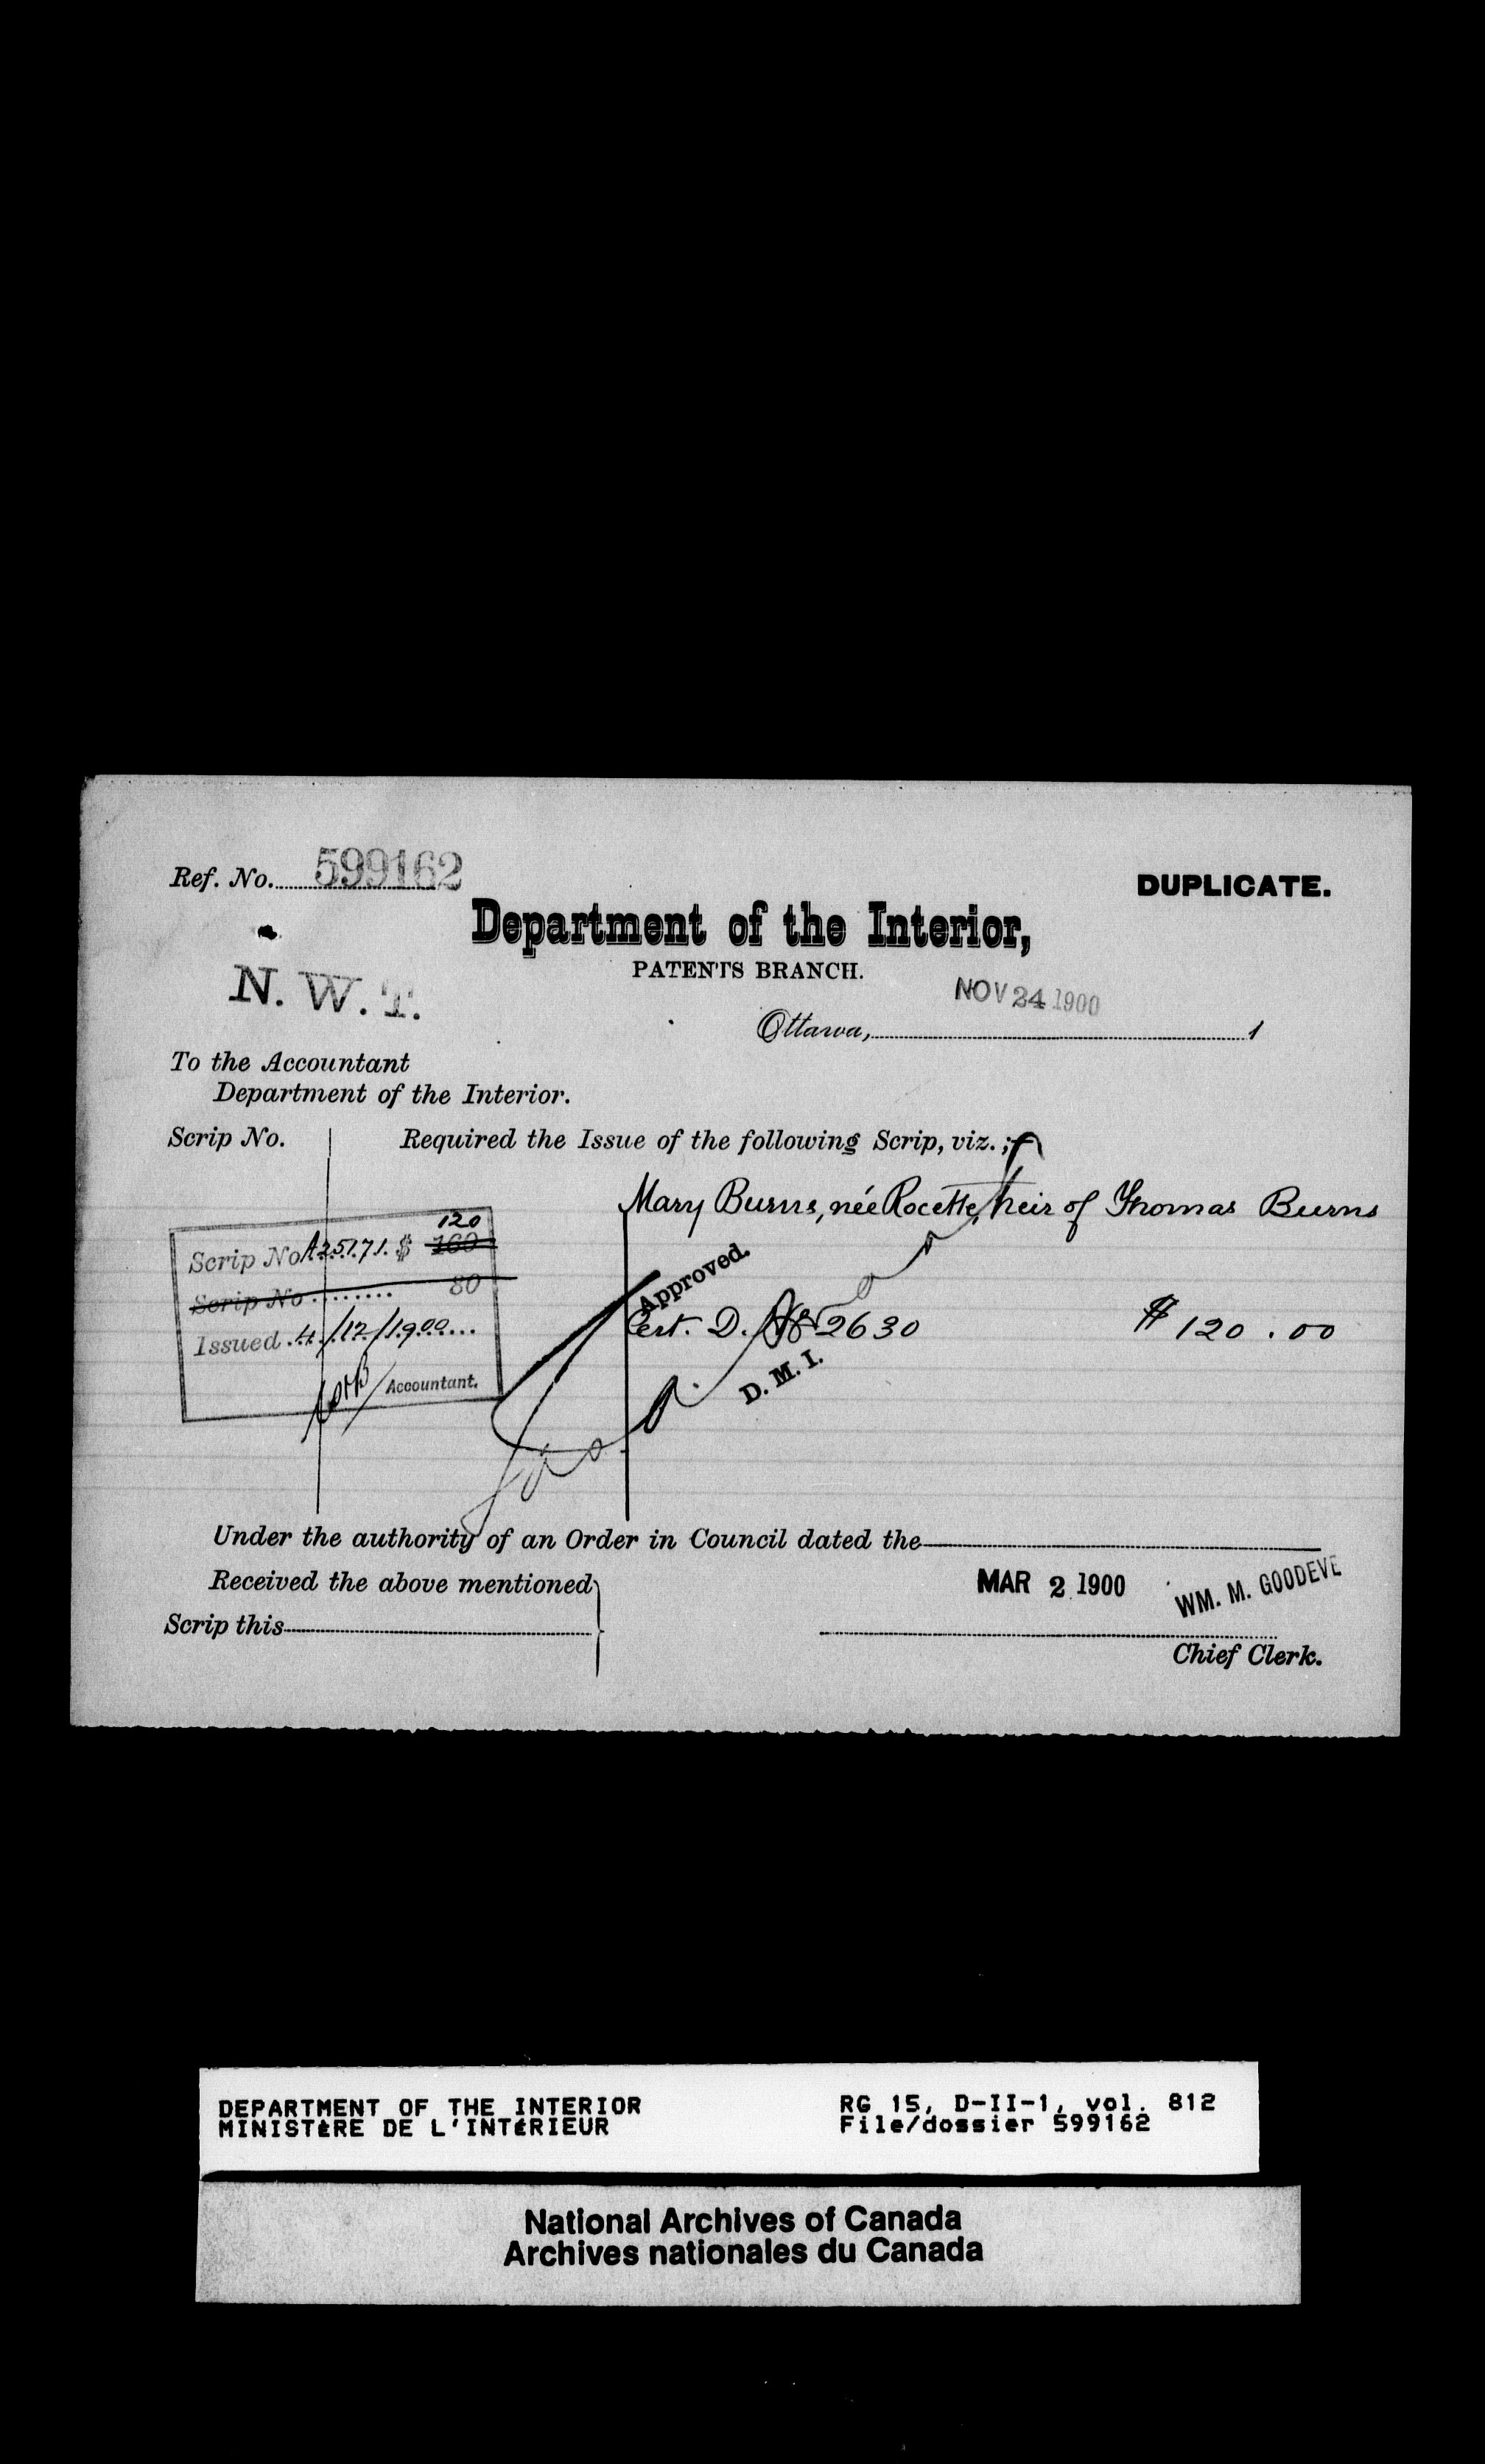 Ref. No. 599162
DUPLICATE.
Department of the Interior,
PATENTS BRANCH.
N. W. T.
NOV 24 1900
Ottawa, 1
To the Accountant
Department of the Interior.
Scrip No. Required the Issue of the following Scrip, viz. ;
Mary Burns, née Rocette, heir of Thomas Burns
120
Scrip No A25171. $ 160
Scrip No ........ 80
Issued 4/12/1900
Accountant.
Approved.
Cert. D. 2630 $ 120.00
D. M. I.
Under the authority of an Order in Council dated the
Received the above mentioned
MAR 2 1900 WM. M. GOODEVE
Scrip this
Chief Clerk.
DEPARTMENT OF THE INTERIOR RG 15, D-II-1, vol. 812
MINISTÈRE DE L'INTÉRIEUR File/dossier 599162
National Archives of Canada
Archives nationales du Canada